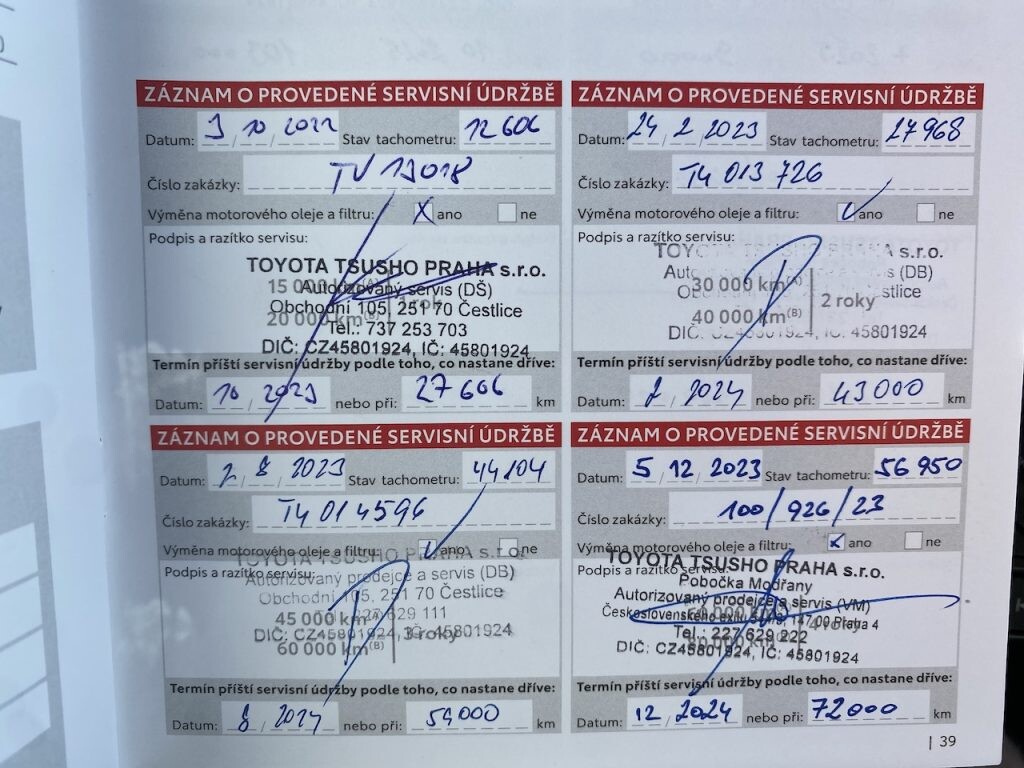 ZÁZNAM O PROVEDENÉ SERVISNÍ ÚDRŽBĚ
Datum: 3 / 10 / 2022 Stav tachometru: 12 606
Číslo zakázky: TV 13018
Výměna motorového oleje a filtru: X ano ne
Podpis a razítko servisu:
TOYOTA TSUSHO PRAHA s.r.o.
15 000 km(A)
Autorizovaný servis (DŠ)
1 rok
Obchodní 105, 251 70 Čestlice
20 000 km(B)
Tel.: 737 253 703
DIČ: CZ45801924, IČ: 45801924
Termín příští servisní údržby podle toho, co nastane dříve:
Datum: 10 / 2023 nebo při: 27 606 km
ZÁZNAM O PROVEDENÉ SERVISNÍ ÚDRŽBĚ
Datum: 24 / 2 / 2023 Stav tachometru: 27 968
Číslo zakázky: T4 013 726
Výměna motorového oleje a filtru: ano ne
Podpis a razítko servisu:
s.r.o.
(DB)
30 000 km(A)
2 roky
40 000 km(B)
DIČ: IČ: 45801924
Termín příští servisní údržby podle toho, co nastane dříve:
Datum: 2 / 2024 nebo při: 43 000 km
ZÁZNAM O PROVEDENÉ SERVISNÍ ÚDRŽBĚ
Datum: 2 / 8 / 2023 Stav tachometru: 44104
Číslo zakázky: T4 014596
Výměna motorového oleje a filtru: ano ne
TOYOTA TSUSHO PRAHA s.r.o.
Podpis a razítko servisu:
Autorizovaný prodejce a servis (DB)
Obchodní 105, 251 70 Čestlice
45 000 km(A)
227 629 111
3 roky
DIČ: CZ45801924, IČ: 45801924
60 000 km(B)
Termín příští servisní údržby podle toho, co nastane dříve:
Datum: 8 / 2024 nebo při: 59000 km
ZÁZNAM O PROVEDENÉ SERVISNÍ ÚDRŽBĚ
Datum: 5 / 12 / 2023 Stav tachometru: 56 950
Číslo zakázky: 100/926/23
Výměna motorového oleje a filtru: x ano ne
TOYOTA TSUSHO PRAHA s.r.o.
Podpis a razítko servisu:
Pobočka Modřany
Autorizovaný prodejce a servis (VM)
Československého exilu 14700 Praha 4
60 000 km(A)
4 roky
80 000 km(B)
Tel.: 227 629 222
DIČ: CZ45801924, IČ: 45801924
Termín příští servisní údržby podle toho, co nastane dříve:
Datum: 12 / 2024 nebo při: 72000 km
| 39